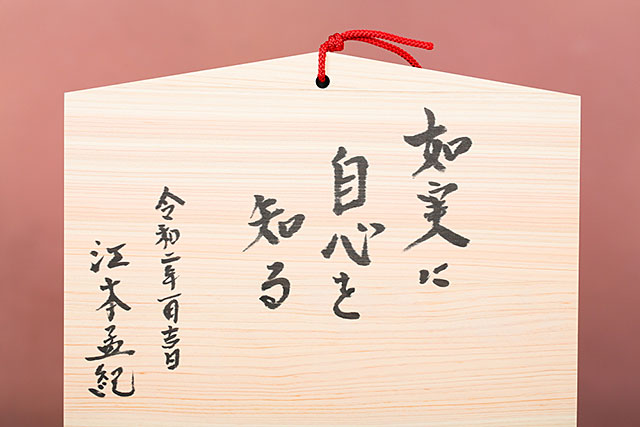 如実に
自心を
知る
令和二年一月吉日
江本孟紀